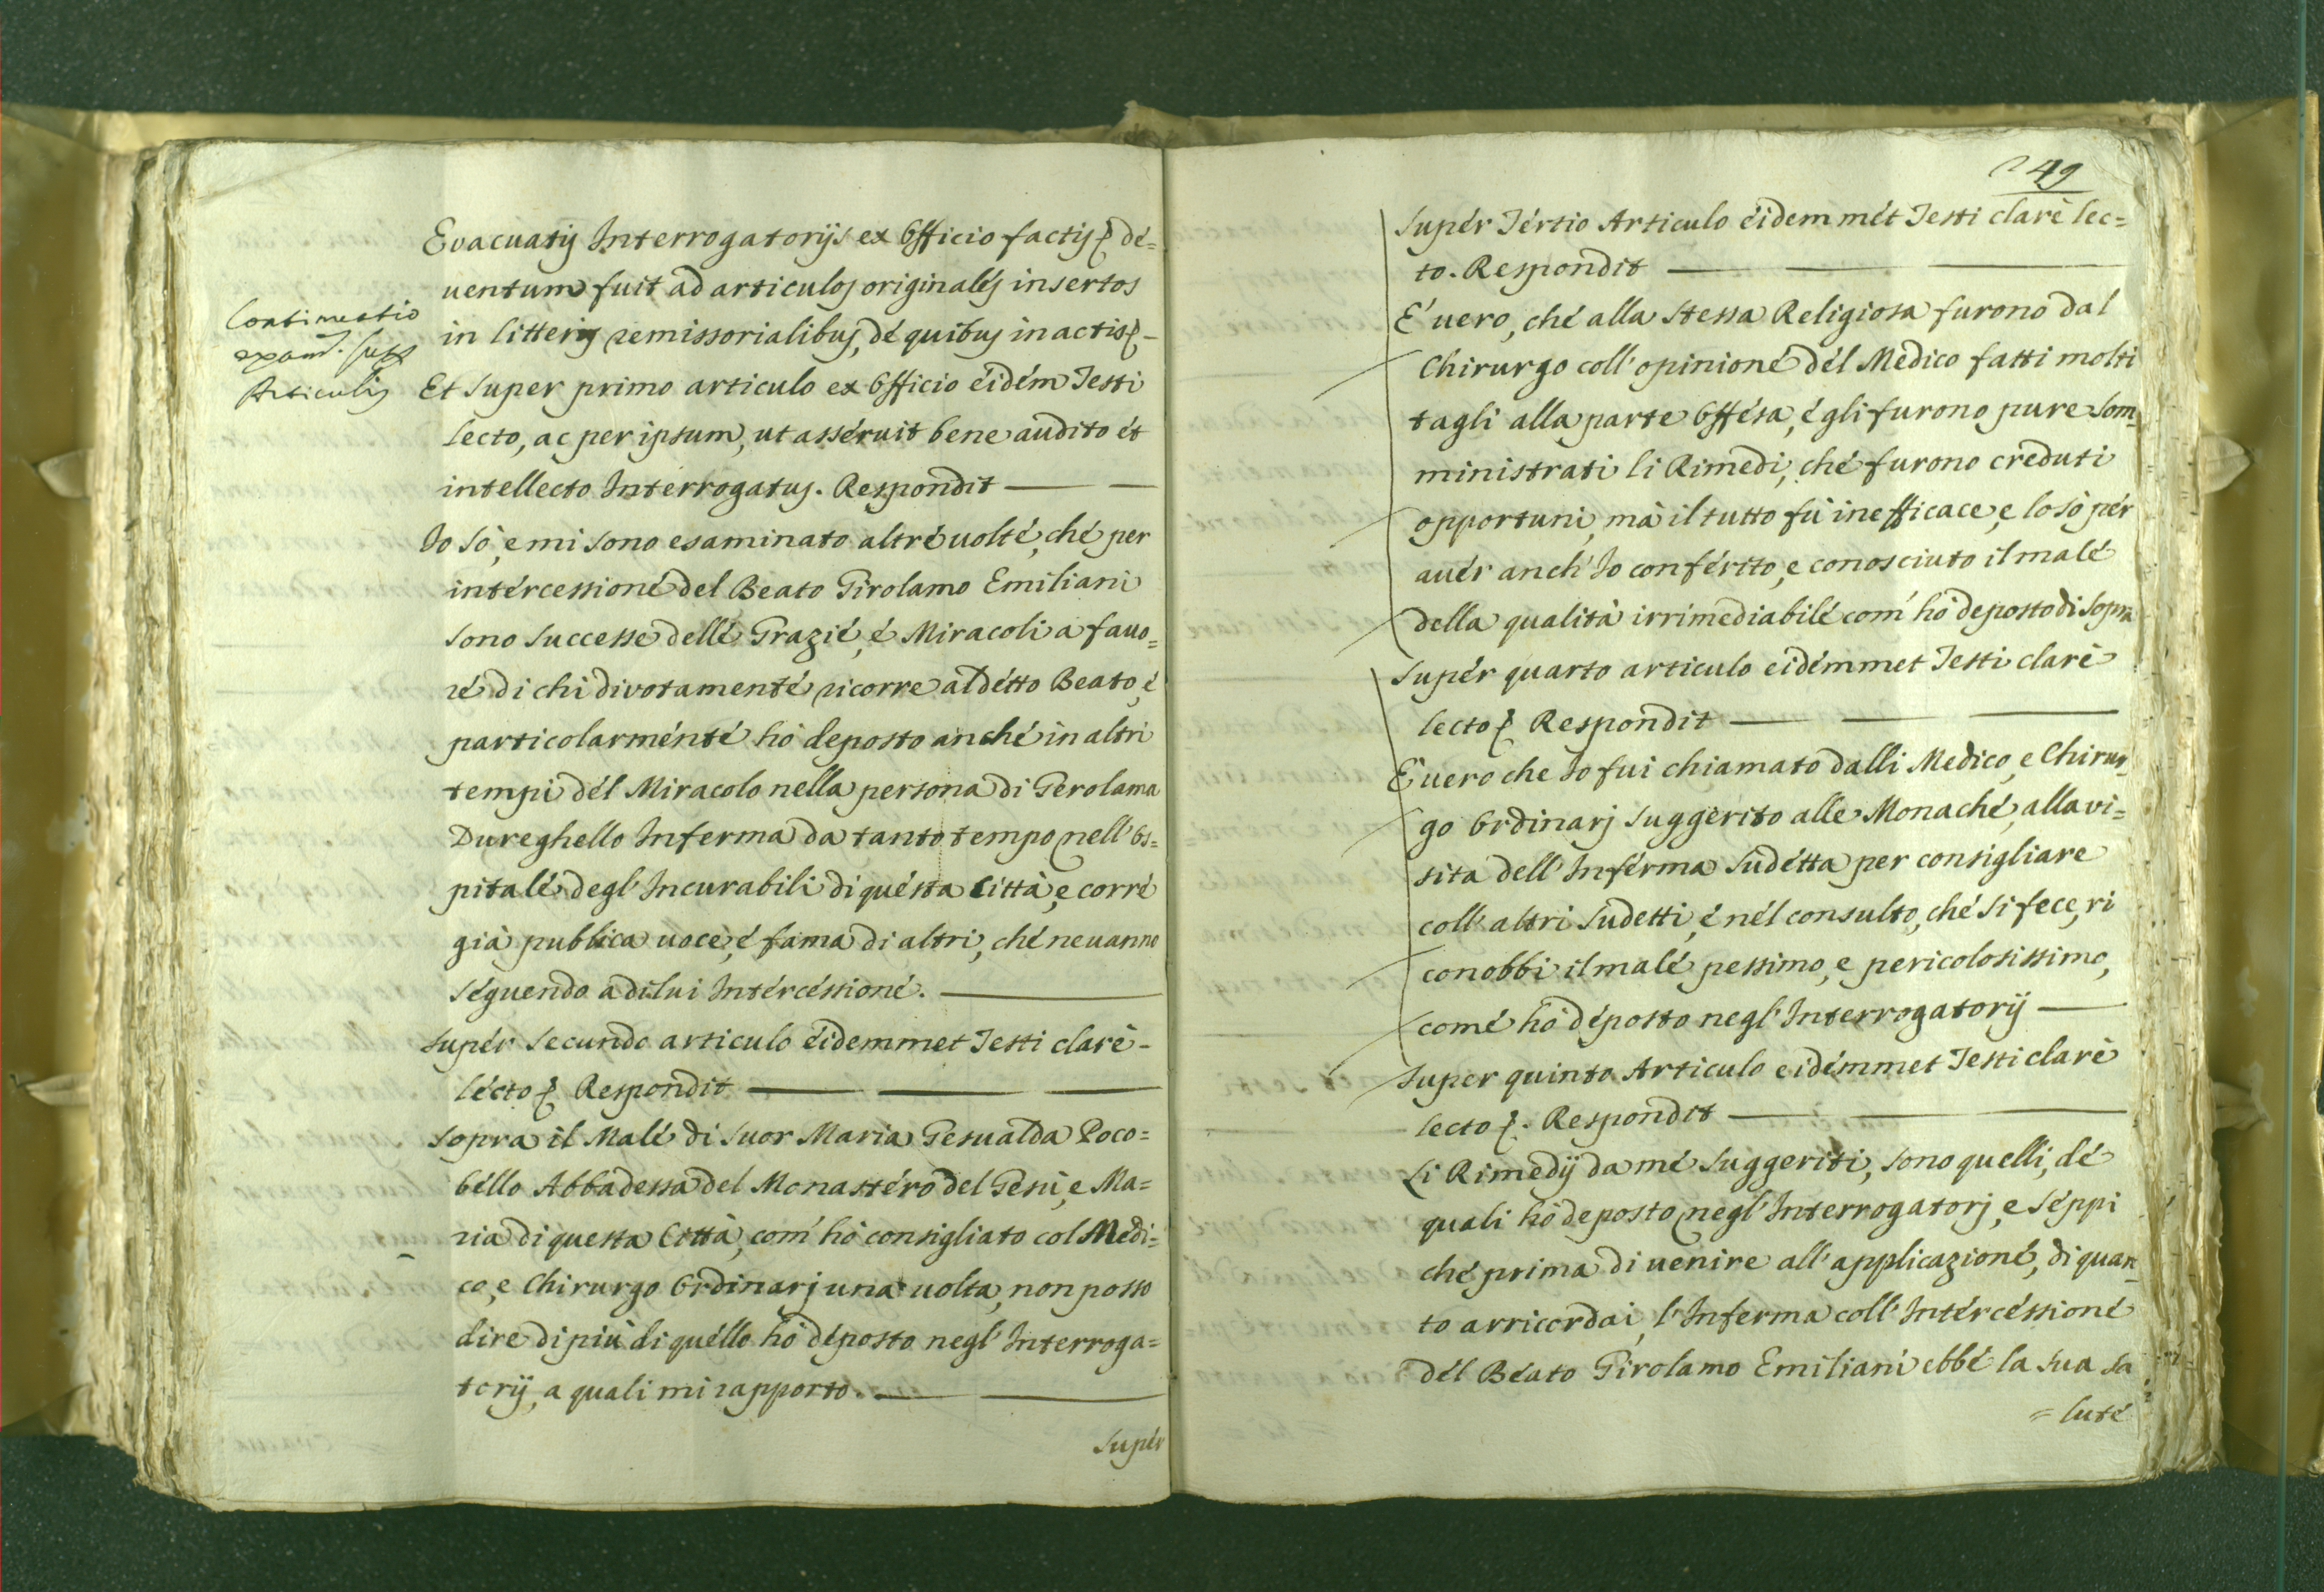 Continuatio
exam. supr
Articulis
Evacuatis Interrogatorijs ex Officio factis &c. dé=
uentum fuit ad articulos originalés insertos
in litteris remissorialibus, dé quibus in actis &c. -
Et super primo articulo ex Officio éidém Testi
lecto, ac per ipsum, ut asséruit bene audito ét
intellecto Interrogatus. Respondit
Io sò, e mi sono esaminato altré uolté, ché per
intércessioné del Beato Girolamo Emiliani
sono successe dellé Grazié, é Miracoli à fauo=
ré di chi divotamenté ricorre al détto Beato, é
particolarménté hò deposto anché in altri
tempi dél Miracolo nella persona di Gerolama
Dureghello Inferma da tanto tempo nell'Os=
pitalé degl'Incurabili di quésta Città, e corré
già publica uocè, é fama di altri, ché ne uanno
séguendo a di lui Intércéssioné.
supér secundo articulo éidemmet Testi clarè -
lécto &c. Respondit
sopra il Malé di Suor Maria Gesualda Poco=
béllo Abbadessa del Monastéro del Gesù, e Ma=
ria di questa Città, com' hò consigliato col Medi=
co, e Chirurgo Ordinarj una uolta, non posso
dire di più di quéllo hò déposto negl'Interroga=
torij, a quali mi rapporto.
supér
249
supér Tértio Articulo éidem mét Testi clarè lec=
to. Respondit
É uero, ché alla stessa Religiosa furono dal
Chirurgo coll'opinioné dél Medico fatti molti
tagli alla parte offésa, é gli furono pure som=
ministrati li Rimedi, ché furono creduti
opportuni, mà il tutto fù inefficace, e lo sò pér
auér anch'Io conférito, e conosciuto il malé
della qualità irrimediabilé com' hò deposto di sopra
supér quarto articulo eidémmet Testi clarè
lecto &c. Respondit
É uero che Io fui chiamato dalli Medico, e Chirur=
go Ordinarj suggerito alle Monaché, alla vi=
sita dell'Inférma sudétta per consigliare
coll'altri sudetti, é nél consulto, ché si fece, ri
conobbi il malé pessimo, e pericolosissimo,
comé hò déposto negl'Interrogatorij
super quinto Articulo eidémmet Testi clarè
lecto &c. Respondit
Li Rimedij da mé suggeriti, sono quelli, dé
quali hò deposto negl'Interrogatorj, e séppi
ché prima di uenire all'applicazioné, di quan=
to arricordai, l'Inferma coll'Intércéssioné
dél Béato Girolamo Emiliani ebbé la sua sa
= luté